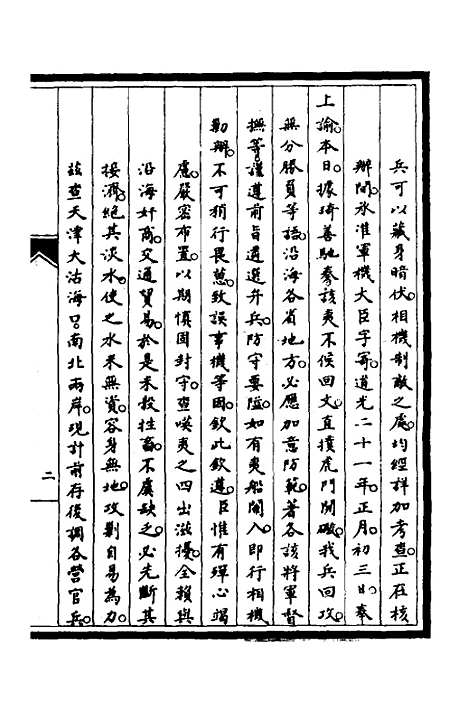 兵可以藏身暗伏。相機制敵之處。均經詳加考查。正在核
辦間。承准軍機大臣字寄。道光二十一年。正月。初三日。奉
上諭。本日。據琦善馳奏。該夷不俟回文。直撲虎門開礮。我兵回攻。
無分勝負等語。沿海各省地方。必應加意防範。著各該將軍督
撫等。謹遵前旨遴選弁兵。防守要隘。如有夷船闖入。即行相機
勦辦。不可稍行畏葸。致誤事機等因。欽此欽遵。臣惟有殫心竭
慮。嚴密布置。以期慎固封守。查嘆夷之四出滋擾。全賴與
沿海奸商。交通貿易。於是米穀牲畜。不虞缺乏。必先斷其
接濟。絕其淡水。使之水米無資。容身無地。攻剿自易為力。
茲查天津大沽海口。南北兩岸。現計前存後調各營官兵。
二